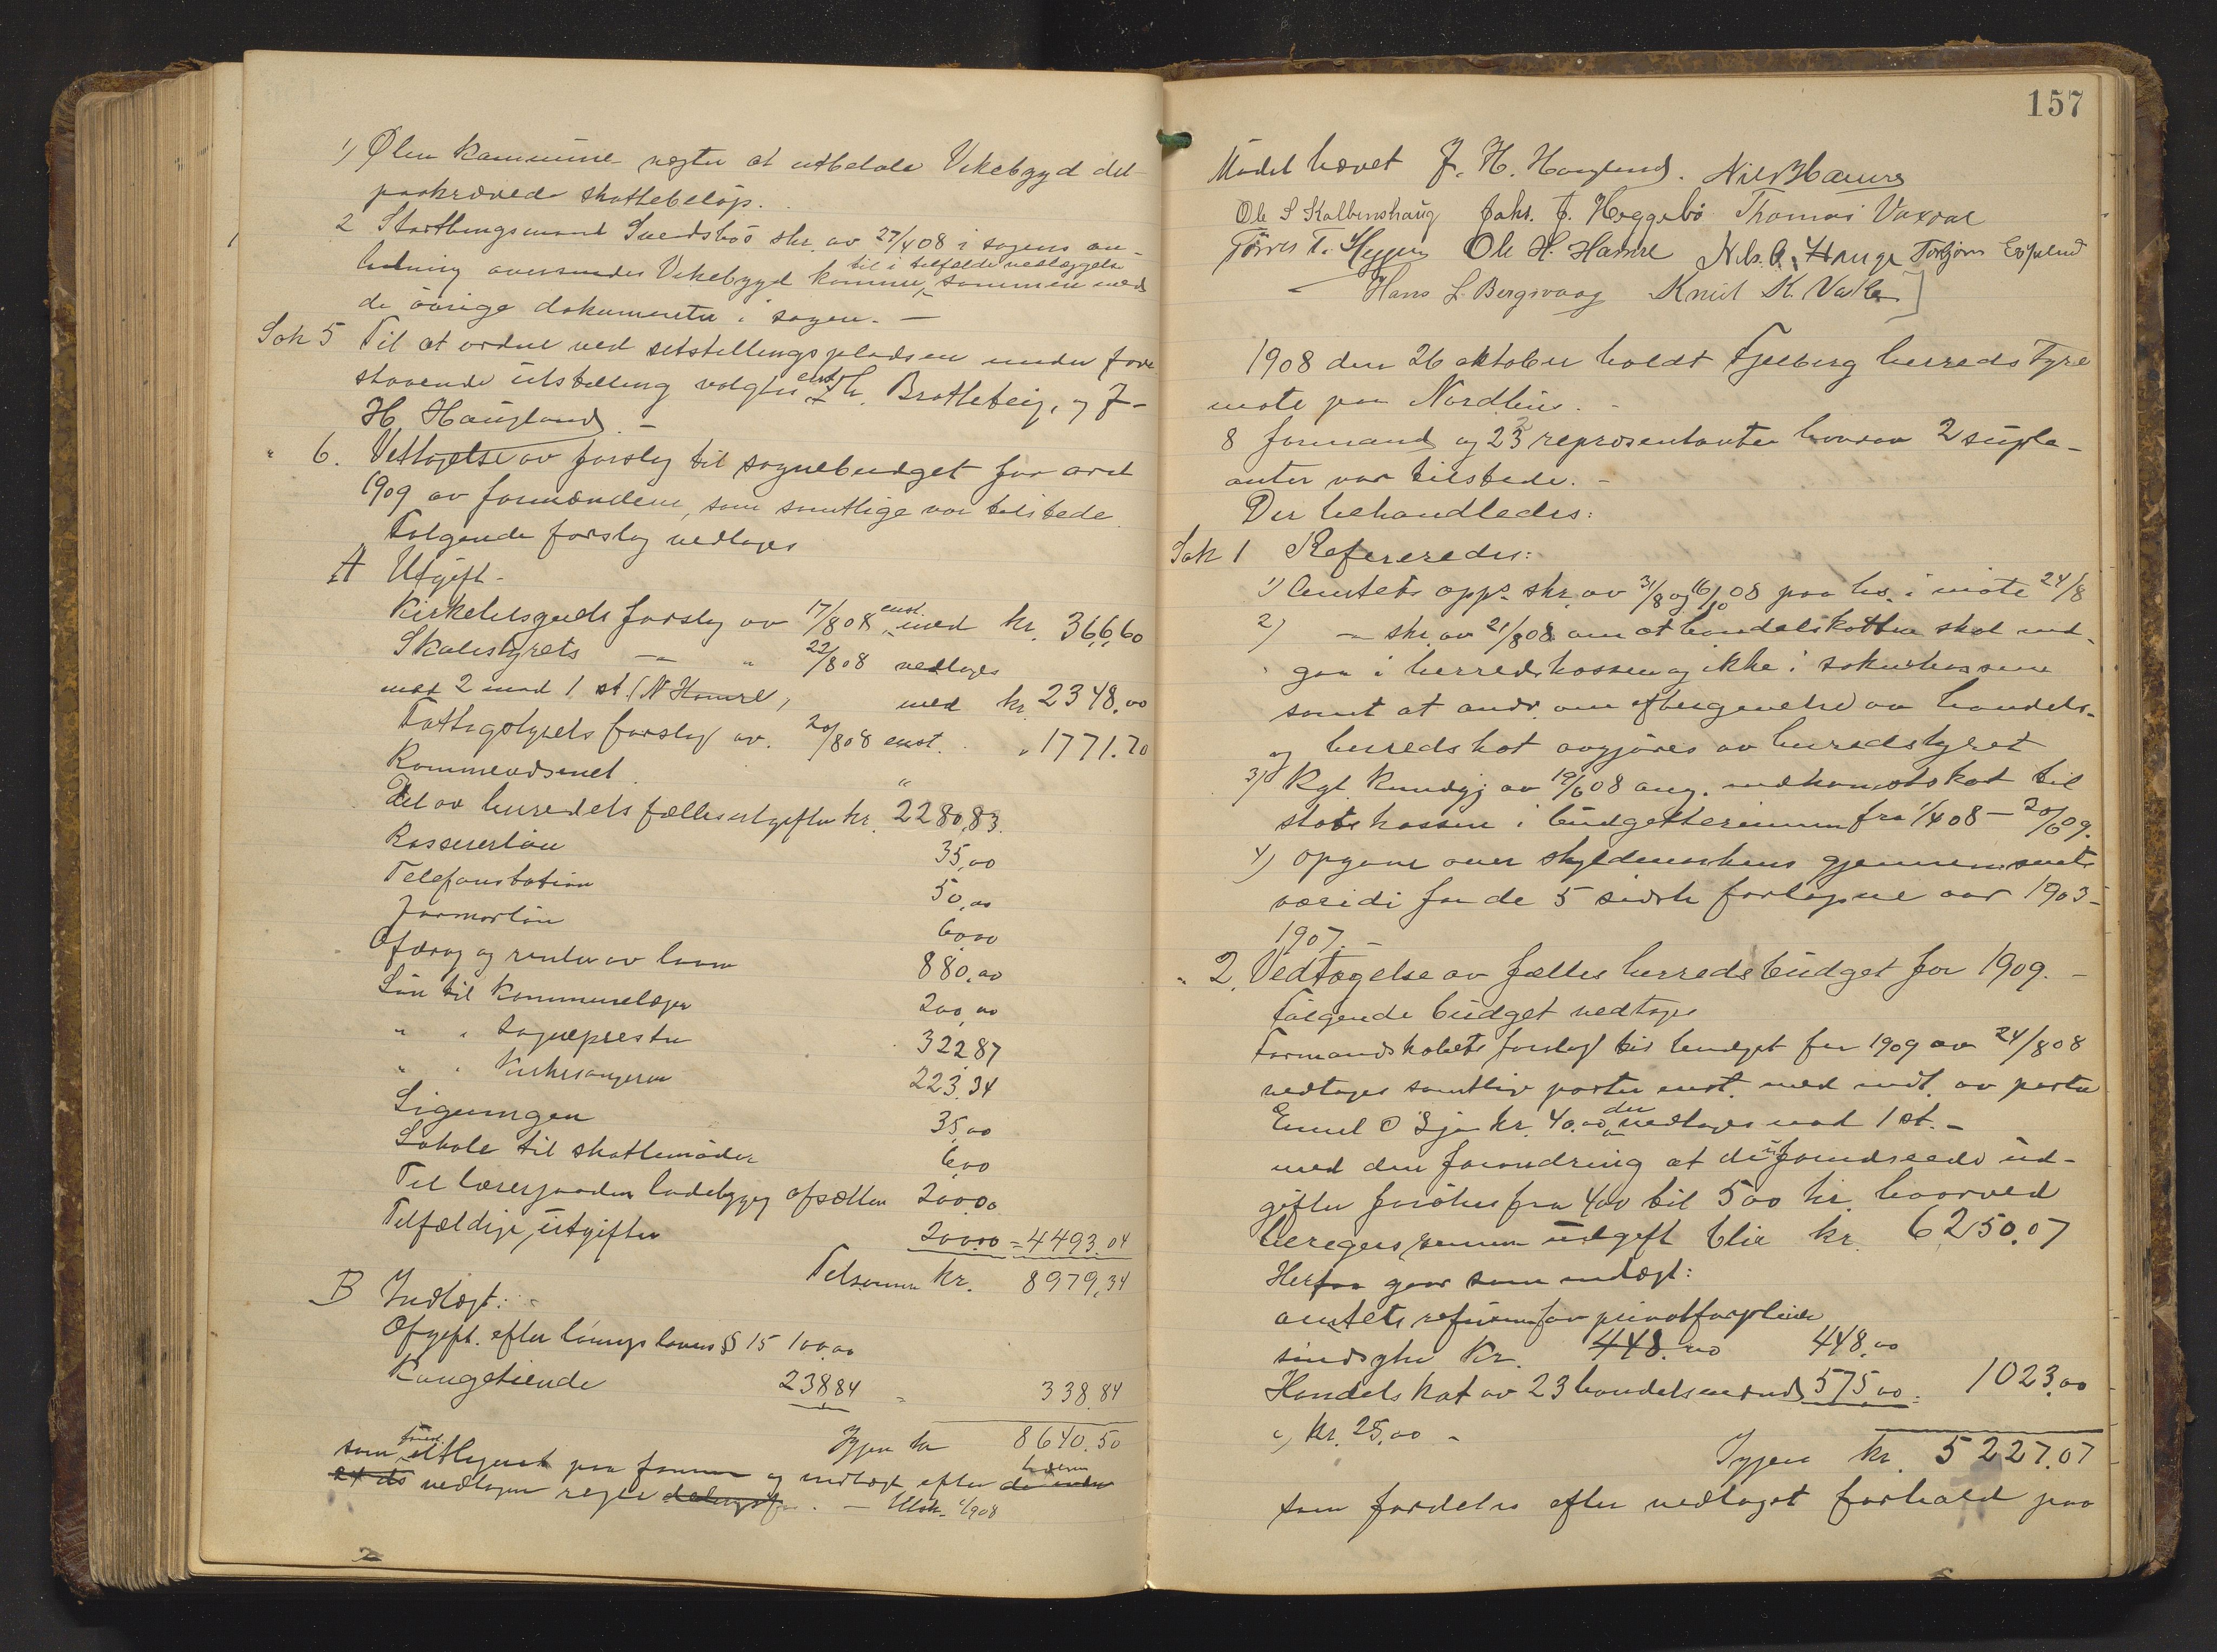 1) Ølen kommune nægter at utbetale Vikebygd det
paakrævede skattebeløp.
2 Storthingsmand Svedsbøs skr. av 27/4 08 i sagens an-
ledning oversendes Vikebygd komune, til i tilfælde vedlæggelse sammen med
de øvrige dokumenter i sagen. —
Sak 5 Til at ordne ved utstillingspladsen under fore
staaende utstilling valgtes enst. Brattebeig, og J-
H. Haugland. —
" 6. Vettagelse av forslag til sognebudget for aaret
1909 av formændene, som samtlige var tilstede.
Følgende forslag vedtages
A Utgift.
Kirketilsynets forslag av 17/8 08 enst. med kr. 366,60
Skolestyrets — " 22/8 08 vedtages
med 2 mod 1 st. (N Hamre), med kr 2348.00
Fattigstyrets forslag av. 20/8 08 enst. " 1771.70
Kommevæsenet "
Del av herredets fællesutgifter kr. 2280,83.
Kassererløn 35,00
Telefonstation 50,00
Jormorløn 60,00
Afdrag og renter av laan 880.00
Løn til kommunelægen 200,00
" " sognepresten 322,87
" " Kirkesangeren 223,34
Ligningen 35,00
Lokale til skattemøder 6,00
Til lærergaarden ladebygg afsættes 200,00
Tilfældige utgifter 200,00 = 4493.04
Tilsammen kr. 8979,34
B Indtægt:
Afgift. efter lønings lovens § 15 100,00
Kongetiende 238,84 " 338.84
Igjen kr 8640.50
som utlignes paa formue og indtægt efter
vedtagne regler. — Utsk. 08
157
Mødet hævet J. H. Haugland. Nils Hamre
Ole S Kalbenshaug Johs. J. Heggebø Thomas Vaxdal
Tørres T. Heggen Ole H. Hamre Nils. A. Hauge Torbjørn Espeland
Hans L. Bergsvaag Knut K. Vaske
1908 den 26 oktober holdt Fjelberg herredstyre
møte paa Nordheim. -
8 formænd og 23 repræsentanter hvorav 2 suple-
anter var tilstede. -
Der behandledes:
Sak 1 Refereredes:
1) Amtets opps. skr. av 31/8 og 16/10 08 paa hs. i møte 24/8
2) — skr. av 21/8 08 om at handelskatten skal ind-
gaa i herredskassen og ikke i soknekassene
samt at andr. om eftergivelse av handels-
og herredskat avgjøres av herredstyret
3) Kgl kundgj av 19/6 08 ang. indkomstskat til
statskassen i budgetterminen fra 1/4 08 — 30/6 09.
4) opgave over skyldmarkens gjennemsnits
værdi for de 5 sidste forløpne aar 1903-
1907. —
" 2. Vedtagelse av fælles herredsbudget for 1909. -
Følgende budget vedtages
Formandskabets forslag til budget for 1909 av 24/8 08
vedtages samtlige poster enst. med undt. av posten
Emmel O Silja kr. 40.00 der vedtages mod 1 st. -
med den forandring at de uforudseede ud-
gifter forøkes fra 400 til 500 kr. hvorved
beregnes summen utgift blir kr. 6250.07
Herfra gaar som indtægt:
amtets refusion for privatforpleiede
sindsyke kr. 448.00 448.00
Handelskat av 23 handelsmænd 575,00 = 1023,00
a kr. 25,00 -
Igjen kr. 5227.07
som fordeles efter vedtaget forhold paa